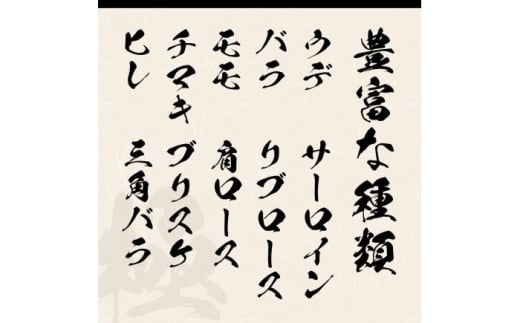 豊富な種類
ウデ サーロイン
バラ リブロース
モモ 肩ロース
チマキ ブリスケ
ヒレ 三角バラ
極